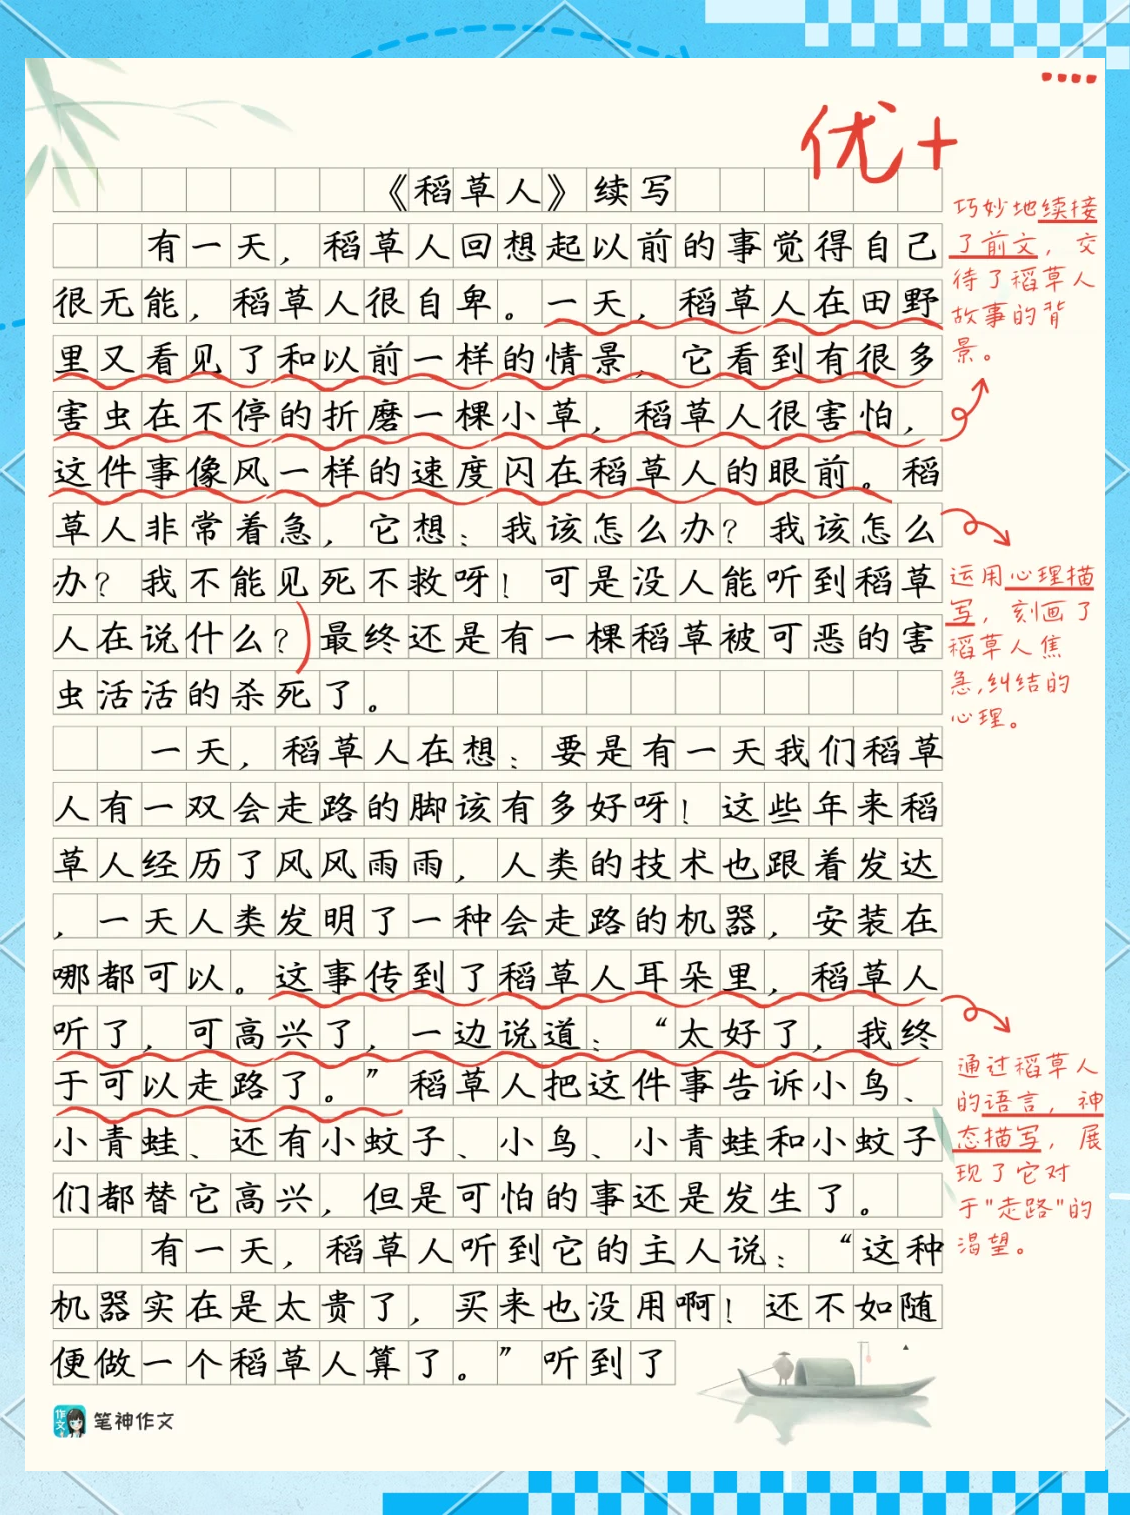 优+
《稻草人》续写
有一天，稻草人回想起以前的事觉得自己
很无能，稻草人很自卑。一天，稻草人在田野
里又看见了和以前一样的情景，它看到有很多
害虫在不停的折磨一棵小草，稻草人很害怕，
这件事像风一样的速度闪在稻草人的眼前。稻
草人非常着急，它想：我该怎么办？我该怎么
办？我不能见死不救呀！可是没人能听到稻草
人在说什么？）最终还是有一棵稻草被可恶的害
虫活活的杀死了。
一天，稻草人在想：要是有一天我们稻草
人有一双会走路的脚该有多好呀！这些年来稻
草人经历了风风雨雨，人类的技术也跟着发达
，一天人类发明了一种会走路的机器，安装在
哪都可以。这事传到了稻草人耳朵里，稻草人
听了，可高兴了，一边说道：“太好了，我终
于可以走路了。”稻草人把这件事告诉小鸟、
小青蛙、还有小蚊子、小鸟、小青蛙和小蚊子
们都替它高兴，但是可怕的事还是发生了。
有一天，稻草人听到它的主人说：“这种
机器实在是太贵了，买来也没用啊！还不如随
便做一个稻草人算了。”听到了
巧妙地续接
了前文，交
待了稻草人
故事的背
景。
运用心理描
写，刻画了
稻草人焦
急,纠结的
心理。
通过稻草人
的语言，神
态描写，展
现了它对
于"走路"的
渴望。
作文
笔神作文